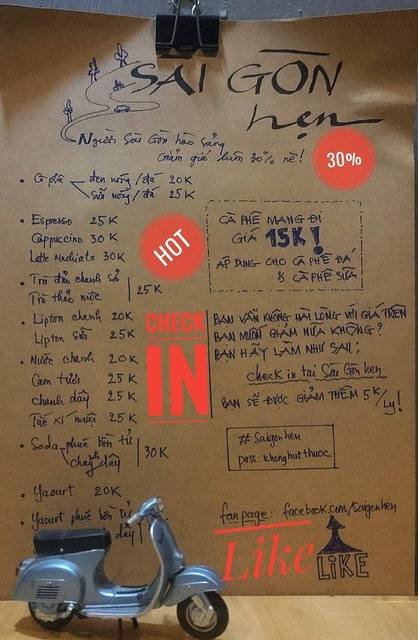 SÀI GÒN
hẹn
Người Sài Gòn hào sảng
Giảm giá luôn 30% nè!
30%
• Cà phê đen nóng/đá 20K
sữa nóng/đá 25K
• Espresso 25K
Cappuccino 30K
Latte Machiato 30K
• Trà đào chanh sả
Trà thảo mộc 25K
• Lipton chanh 20K
Lipton sữa 25K
• Nước chanh 20K
Cam tươi 25K
chanh dây 25K
Tắc xí muội 25K
• Soda phúc bồn tử
chanh dây 30K
• Yaourt 20K
• Yaourt phúc bồn tử
dây
HOT
CHECK
IN
CÀ PHÊ MANG ĐI
GIÁ 15K!
ÁP DỤNG CHO CÀ PHÊ ĐÁ
& CÀ PHÊ SỮA
BẠN VẪN KHÔNG HÀI LÒNG VỚI GIÁ TRÊN
BẠN MUỐN GIẢM NỮA KHÔNG?
BẠN HÃY LÀM NHƯ SAU:
check in tại Sài Gòn hẹn
BẠN SẼ ĐƯỢC GIẢM THÊM 5K/Ly!
# Saigonhen
pass: khonghutthuoc
fanpage: facebook.com/Saigonhen
Like
LIKE